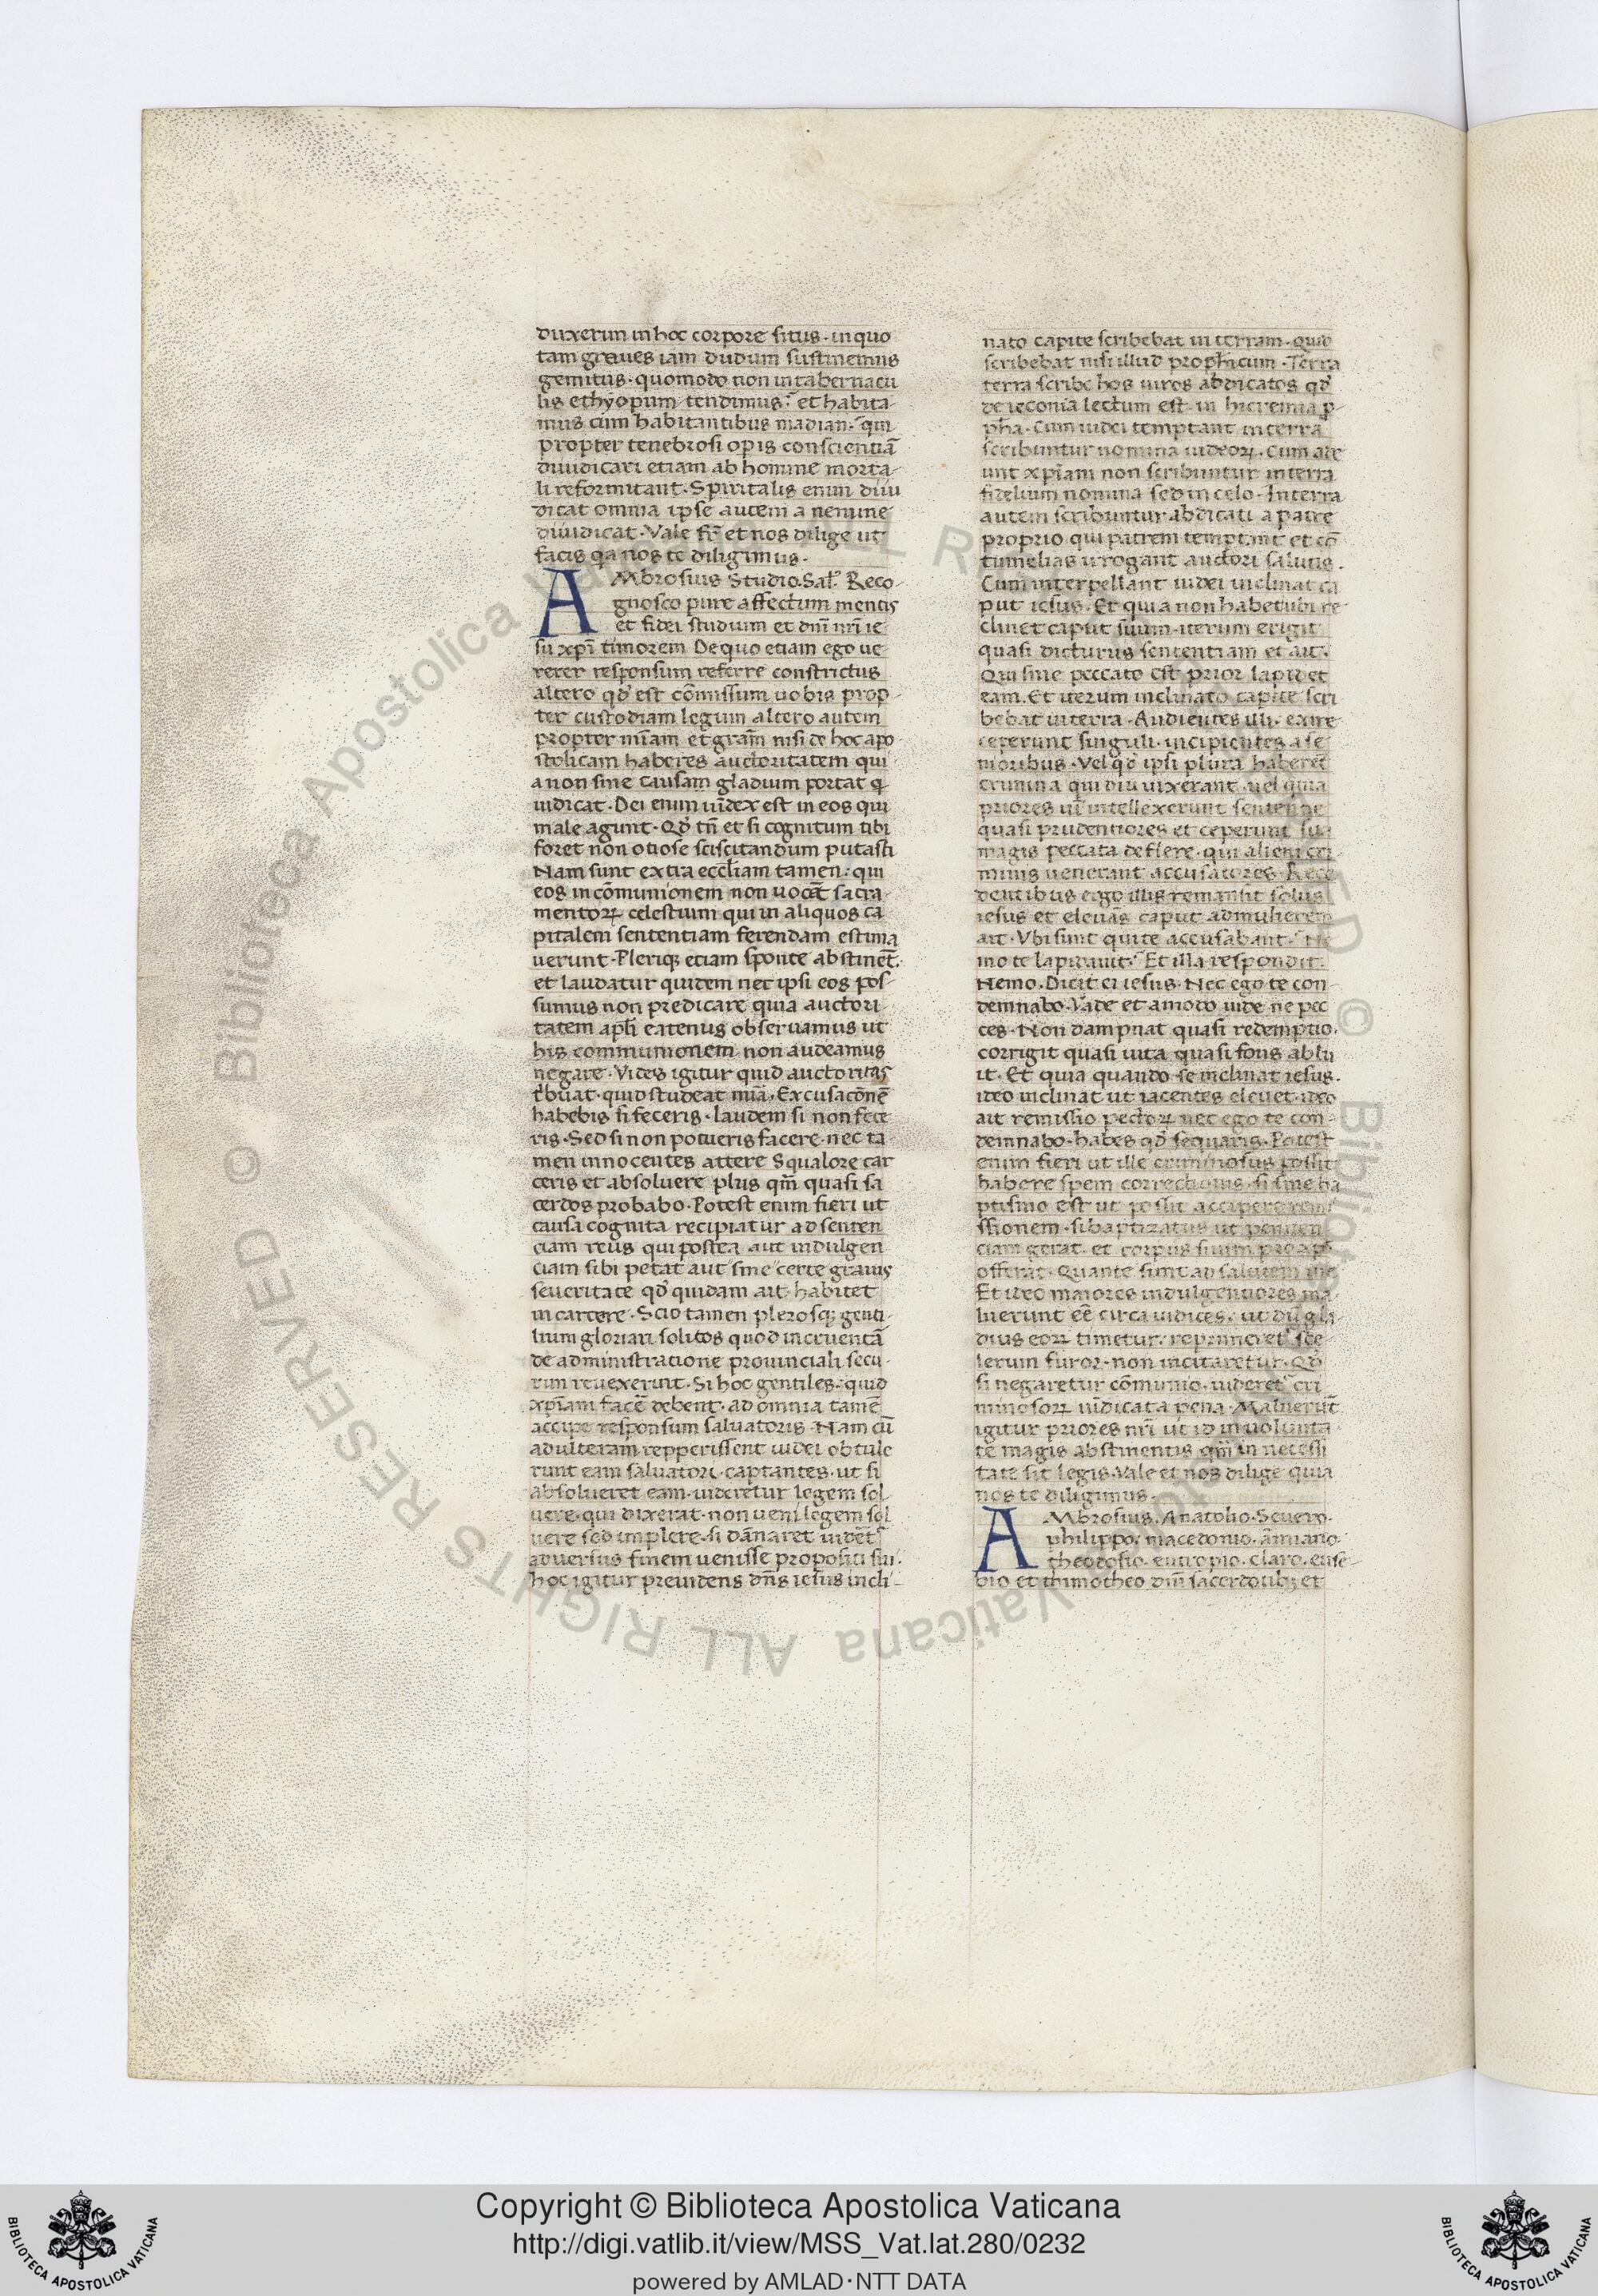 duxerim in hoc corpore situs · in quo
tam graues iam dudum sustinemus
gemitus · quomodo non in tabernacu
lis ethyopum tendimus? et habita-
mus cum habitantibus madian? qui
propter tenebrosi opis conscientiā
diiudicari etiam ab homine morta-
li reformitant · Spiritalis enim diiu
dicat omnia ipse autem a nemine
diiudicat · Vale fr̄ et nos dilige ut
facis qa nos te diligimus ·
AMbrosius Studio Sal̄. Reco-
gnosco pure affectum mentis
et fidei studium et dn̄i nr̄i ie
su xp̄i timorem De quo etiam ego ue-
rerer responsum referre constrictus
altero qd̓ est cōmissum uobis prop-
ter custodiam legum altero autem
propter mīam et gr̄am nisi de hoc apo-
stolicam haberes auctoritatem qui
a non sine causam gladium portat q̄
iudicat · Dei enim uīdex est in eos qui
male agunt · Qd̓ tn̄ et si cognitum tibi
foret non otiose sciscitandum putasti
Nam sunt extra eccl̄iam tamen · qui
eos in cōmunionem non uocēt sacra
mentoꝝ celestium qui in aliquos ca
pitalem sententiam ferendam estima
uerunt · Pleriqꝫ etiam sponte abstinēt.
et laudatur quidem nec ipsi eos pos-
sumus non predicare quia auctori
tatem ap̄li eatenus obseruamus ut
his communionem non audeamus
negare · Vides igitur quid auctoritas
t̓buat · quid studeat mīa · Excusacōnē
habebis si feceris · laudem si non fece
ris · Sed si non potueris facere · nec ta
men innocentes attere Squalore car
ceris et absoluere plus qm̄ quasi sa
cerdos probabo · Potest enim fieri ut
causa cognita recipiatur ad senten
ciam reus qui postea aut indulgen
ciam sibi petat aut sine certe grauis
seueritate qd̓ quidam ait · habitet
in carcere · Scio tamen plerosqꝫ genti-
lium gloriari solitos quod incruentā
de administratione prouinciali secu-
rim reuexerint · Si hoc gentiles · quid
xp̄iam facē debent · ad omnia tamē
accipe responsum saluatoris · Nam cū
adulteram repperissent iudei obtule
runt eam saluatori · captantes · ut si
absolueret eam · uideretur legem sol
uere · qui dixerat · non ueni legem sol
uere sed implere · si dānaret uidēt̓
aduersus finem uenisse propositi sui ·
hoc igitur preuidens dn̄s iesus incli-
nato capite scribebat in terram · Quid
scribebat nisi illud proph̄icum · Terra
terra scribe hos uiros abdicatos qd̓
de ieconia lectum est · in hieremia p̄
ph̄a · Cum iudei temptant in terra
scribuntur nomina iudeoꝝ · Cum
xp̄iam non scribuntur in terra
fidelium nomina sed in celo · In terra
autem scribuntur abdicati a patre
proprio qui patrem temptant et cō
tumelias irrogant auctori salutis ·
Cum interpellant iudei inclinat ca
put iesus · Et quia non habet ubi re-
clinet caput suum · iterum erigit
quasi dicturus sententiam et ait ·
Qui sine peccato est prior lapidet
eam · Et iterum inclinato capite scri
bebat in terra · Audientes illi · exire
ceperunt singuli · incipientes a se
nioribus · Vel qd̓ ipsi plura haberēt
crimina qui diu uixerant · uel quia
priores uī intellexerunt sententie
quasi prudentiores et ceperunt su
magis peccata deflere · qui alieni cri
minis uenerant accusatores · Rece
dentibus ergo illis remansit solus
iesus et eleuās caput ad mulierem
ait · Vbi sunt qui te accusabant? Ne
mo te lapidauit? Et illa respondit ·
Nemo · Dicit ei iesus · Nec ego te con-
demnabo · Vade et amodo uide ne pec
ces · Non dampnat quasi redemptio ·
corrigit quasi uita quasi fons ablu
it · Et quia quando se inclinat iesus ·
ideo inclinat ut iacentes eleuet · ideo
ait remissio pectoꝝ nec ego te con-
demnabo · habes qd̓ sequaris · Potest
enim fieri ut ille criminosus possit
habere spem correctionis · si sine ba
ptismo est ut possit accipere remi
ssionem · si baptizatus ut peniten
ciam gerat · et corpus suum pro
offerat · Quante sunt ad salutem uie
Et ideo maiores indulgentiores ma-
luerunt eē circa iudices · ut dū gla
dius eoꝝ timetur · reprimeret̓ sce-
lerum furor · non incitaretur · Qd̓
si negaretur cōmunio · uideret̓ cri
minosoꝝ uīdicata pena · Maluerūt
igitur priores nr̄i ut id in uolunta
te magis abstinentis qm̄ in necessi
tate sit legis · Vale et nos dilige quia
nos te diligimus ·
AMbrosius · Anatolio · Seuero ·
philippo · macedonio · āmiano ·
theodosio · eutropio · claro · euse-
bio et thimotheo dn̄i sacerdotibꝫ et
© Biblioteca Apostolica Vaticana ALL RIGHTS RESERVED
Copyright © Biblioteca Apostolica Vaticana
http://digi.vatlib.it/view/MSS_Vat.lat.280/0232
powered by AMLAD·NTT DATA
BIBLIOTECA APOSTOLICA VATICANA
BIBLIOTECA APOSTOLICA VATICANA